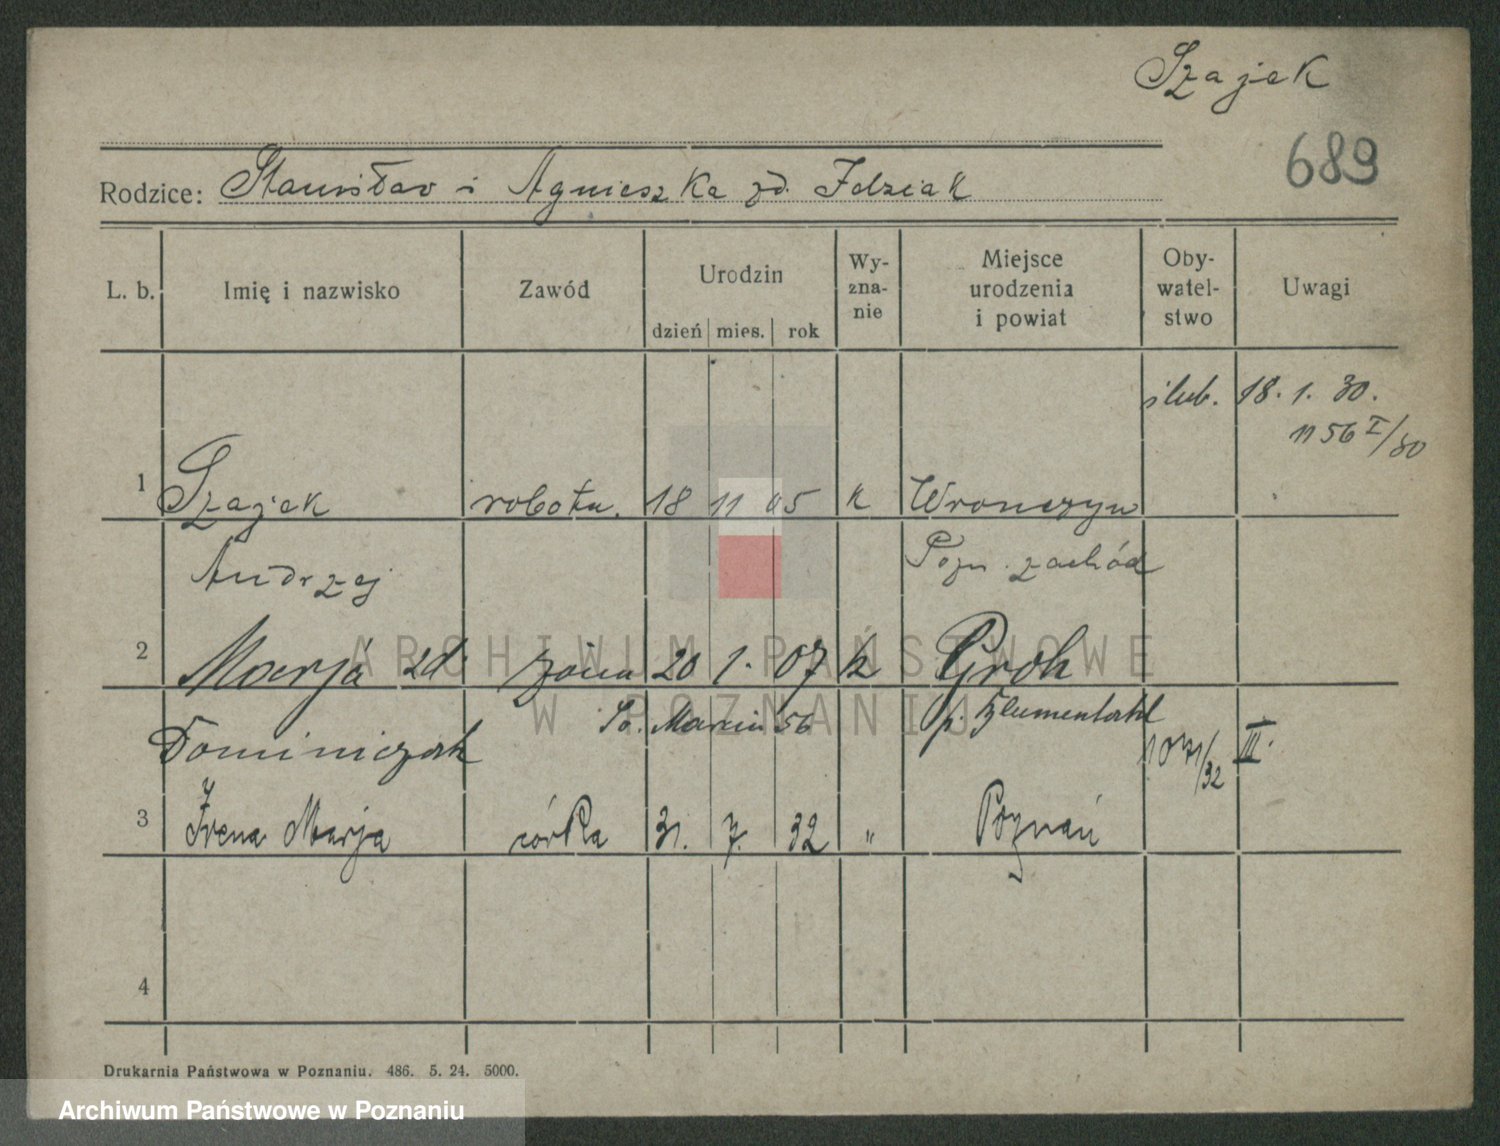 Szajek
689
Rodzice: Stanisław i Agnieszka zd. Idziak
L. b. Imię i nazwisko Zawód Urodzin dzień mies. rok Wy-zna-nie Miejsce urodzenia i powiat Oby-watel-stwo Uwagi
ślub. 18. 1. 30.
1156 I/30
1 Szajek robotn. 18 11 05 k Wronczyn
Andrzej Pozn. zachód
2 Marja zd. żona 20 1. 07 k Groh
Dominiczak Św. Marcin 56 p. Blumenthal
1071/32 III.
3 Irena Marja córka 31. 7. 32 " Poznań
4
ARCHIWUM PAŃSTWOWE
W POZNANIU
Drukarnia Państwowa w Poznaniu. 486. 5. 24. 5000.
Archiwum Państwowe w Poznaniu